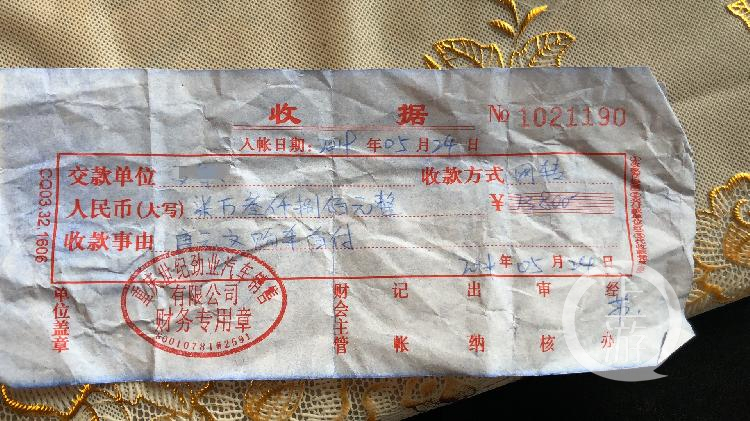 收 据
No 1021190
入帐日期: 2019 年 05 月 24 日
交款单位 收款方式 网转
人民币(大写) 柒万叁仟捌佰元整 ¥ 73800
收款事由 购车首付
2019 年 05 月 24 日
CQ03.32.1606
世纪劲业汽车销售
有限公司
财务专用章
单位盖章
财会主管
记帐
出纳
审核
经办
上游